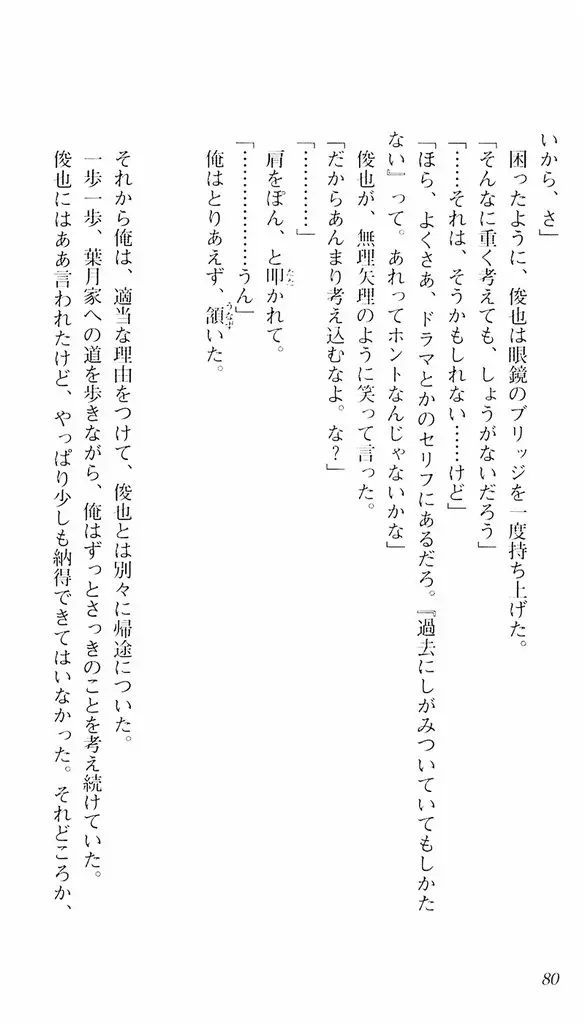 いから、さ」
　困ったように、俊也は眼鏡のブリッジを一度持ち上げた。
「そんなに重く考えても、しょうがないだろう」
「……それは、そうかもしれない……けど」
「ほら、よくさあ、ドラマとかのセリフにあるだろ。『過去にしがみついていてもしかた
ない』って。あれってホントなんじゃないかな」
　俊也が、無理矢理のように笑って言った。
「だからあんまり考え込むなよ。な？」
「…………」
　肩をぽん、と叩かれて。
たた
「………………うん」
　俺はとりあえず、頷いた。
うなず
　それから俺は、適当な理由をつけて、俊也とは別々に帰途についた。
　一歩一歩、葉月家への道を歩きながら、俺はずっとさっきのことを考え続けていた。
　俊也にはああ言われたけど、やっぱり少しも納得できてはいなかった。それどころか、
80